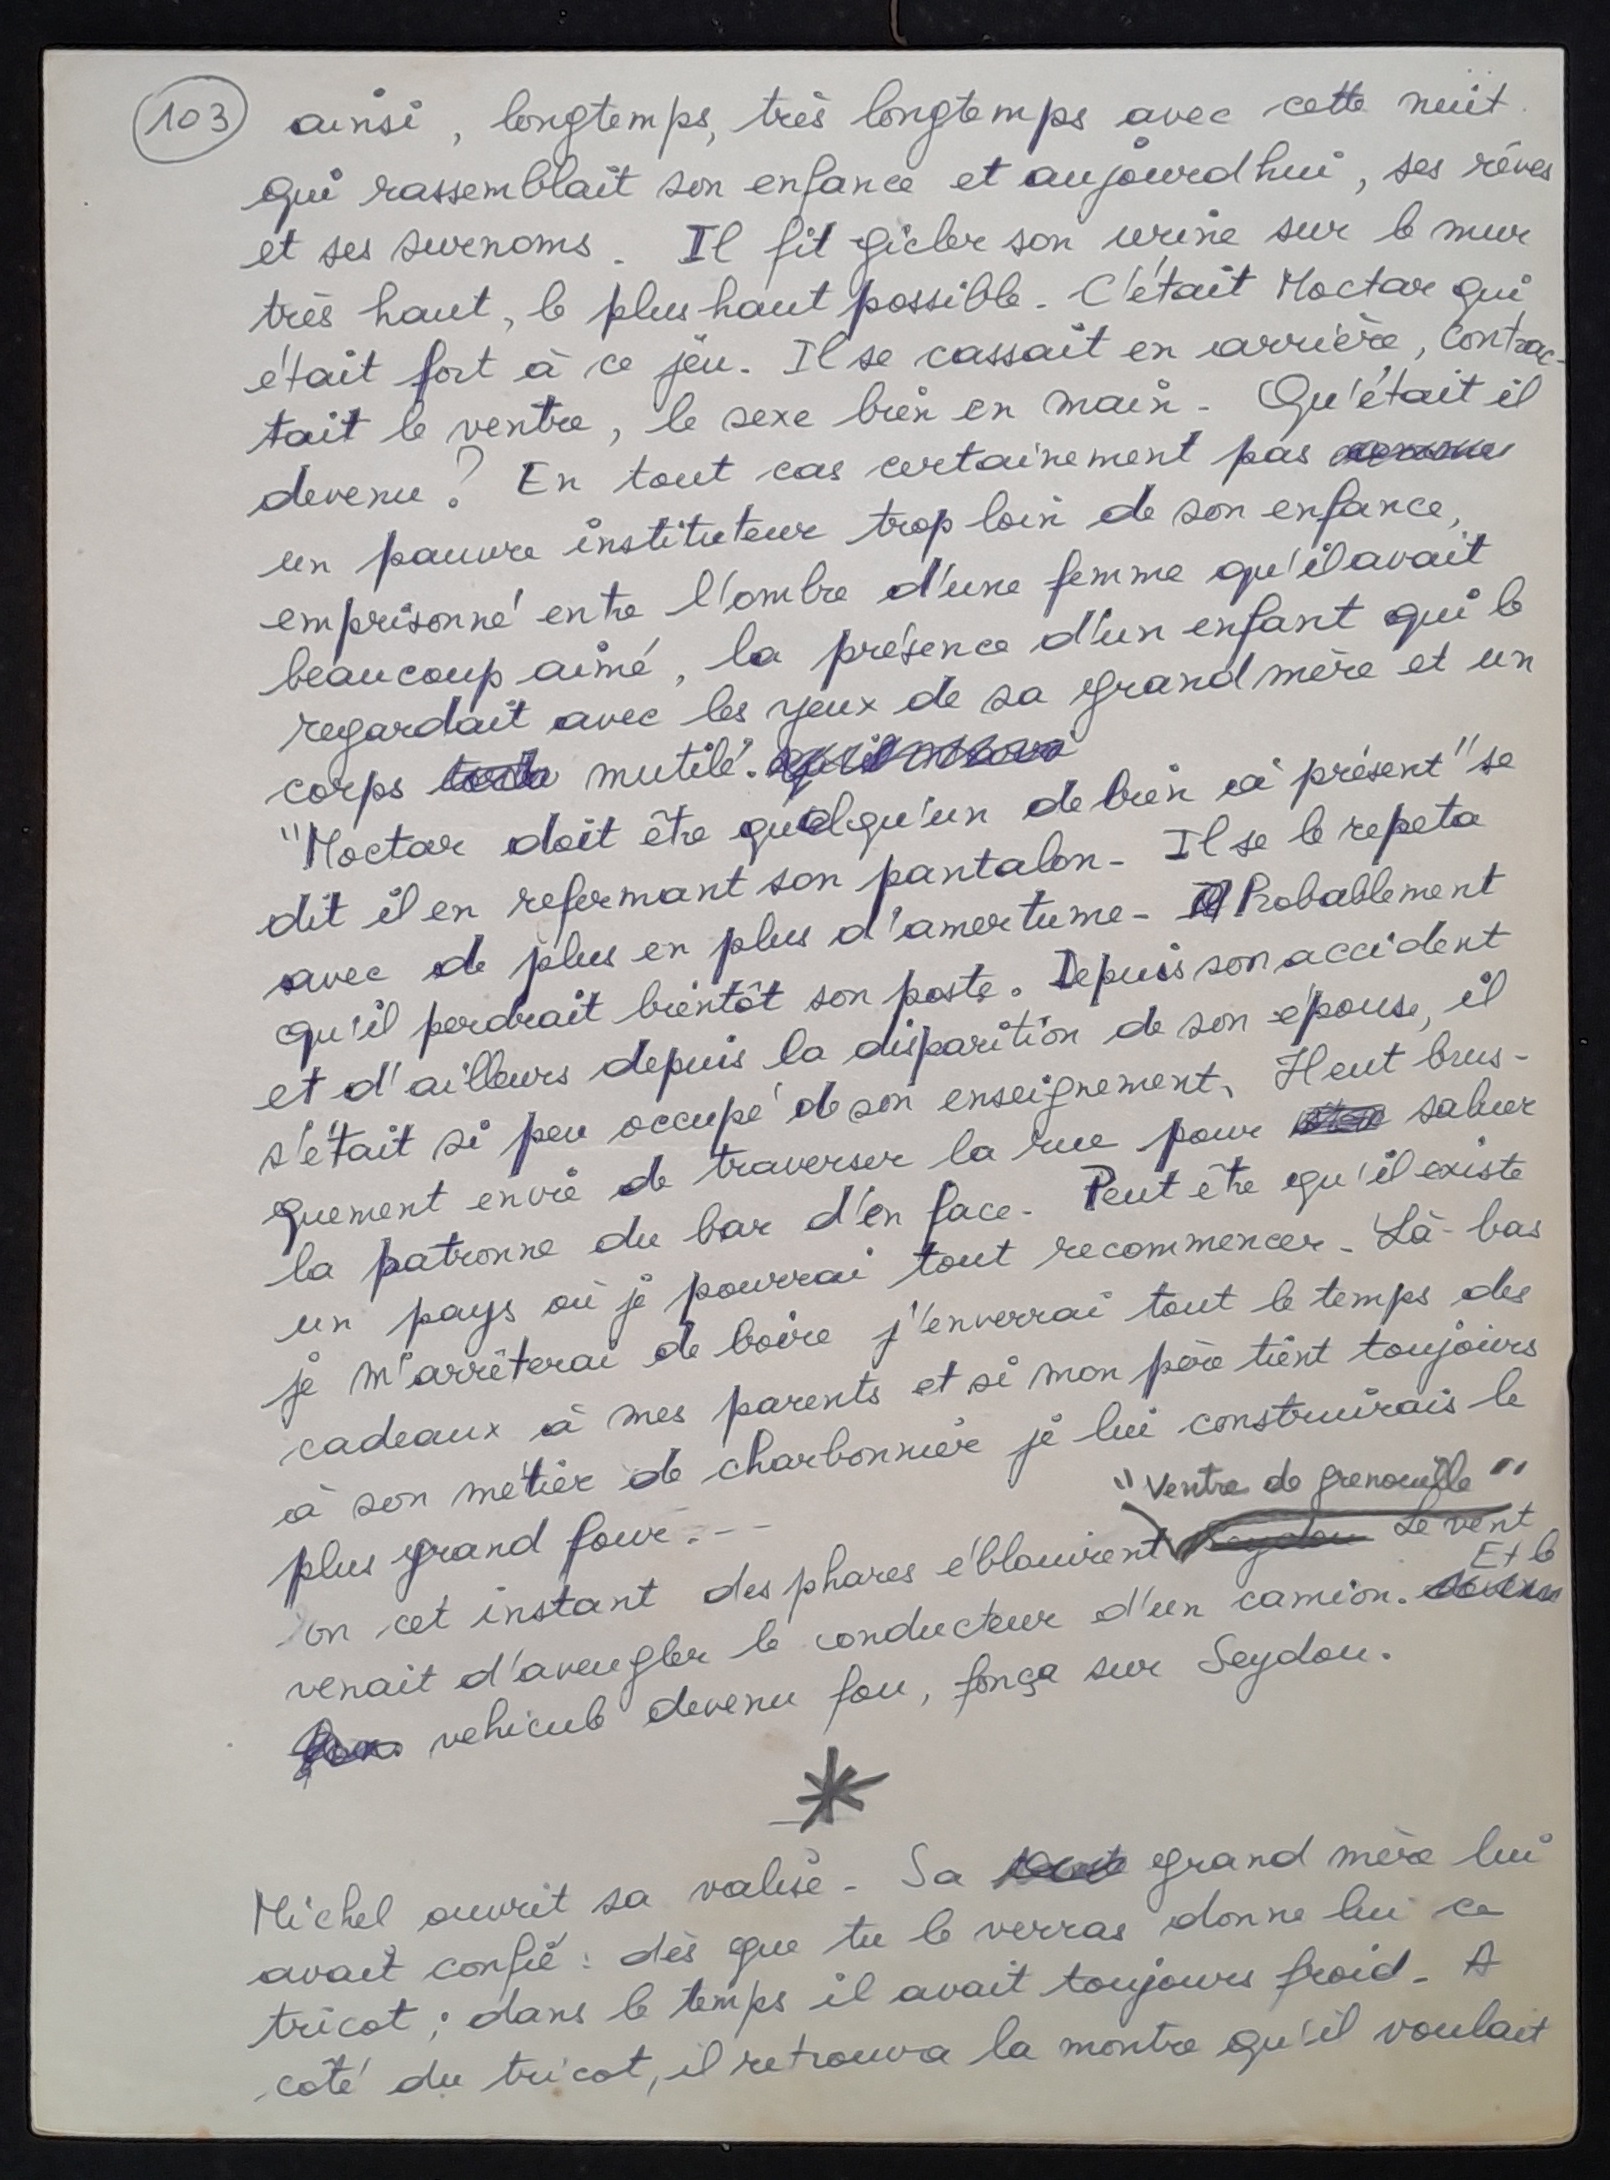 103 ainsi, longtemps, très longtemps avec cette nuit
qui rassemblait son enfance et aujourd'hui, ses rêves
et ses surnoms. Il fit gicler son urine sur le mur
très haut, le plus haut possible. C'était Moctar qui
était fort à ce jeu. Il se cassait en arrière, contrac-
tait le ventre, le sexe bien en main. Qu'était il
devenu ? En tout cas certainement pas
un pauvre instituteur trop loin de son enfance,
emprisonné entre l'ombre d'une femme qu'il avait
beaucoup aimé, la présence d'un enfant qui le
regardait avec les yeux de sa grand mère et un
corps mutilé.
"Moctar doit être quelqu'un de bien à présent" se
dit il en refermant son pantalon. Il se le repeta
avec de plus en plus d'amertume. Probablement
qu'il perdrait bientôt son poste. Depuis son accident
et d'ailleurs depuis la disparition de son épouse, il
s'était si peu occupé de son enseignement. Il eut brus-
quement envie de traverser la rue pour saluer
la patronne du bar d'en face. Peut être qu'il existe
un pays où je pourrai tout recommencer. Là-bas
je m'arrêterai de boire j'enverrai tout le temps des
cadeaux à mes parents et si mon père tient toujours
à son métier de charbonnier je lui construirais le
plus grand four...
"Ventre de grenouille"
on cet instant des phares éblouirent Seydou Le vent
venait d'aveugler le conducteur d'un camion. Et le
vehicule devenu fou, fonça sur Seydou.
*
Michel ouvrit sa valise. Sa grand mère lui
avait confié : dès que tu le verras donne lui ce
tricot ; dans le temps il avait toujours froid. A
côté du tricot, il retrouva la montre qu'il voulait